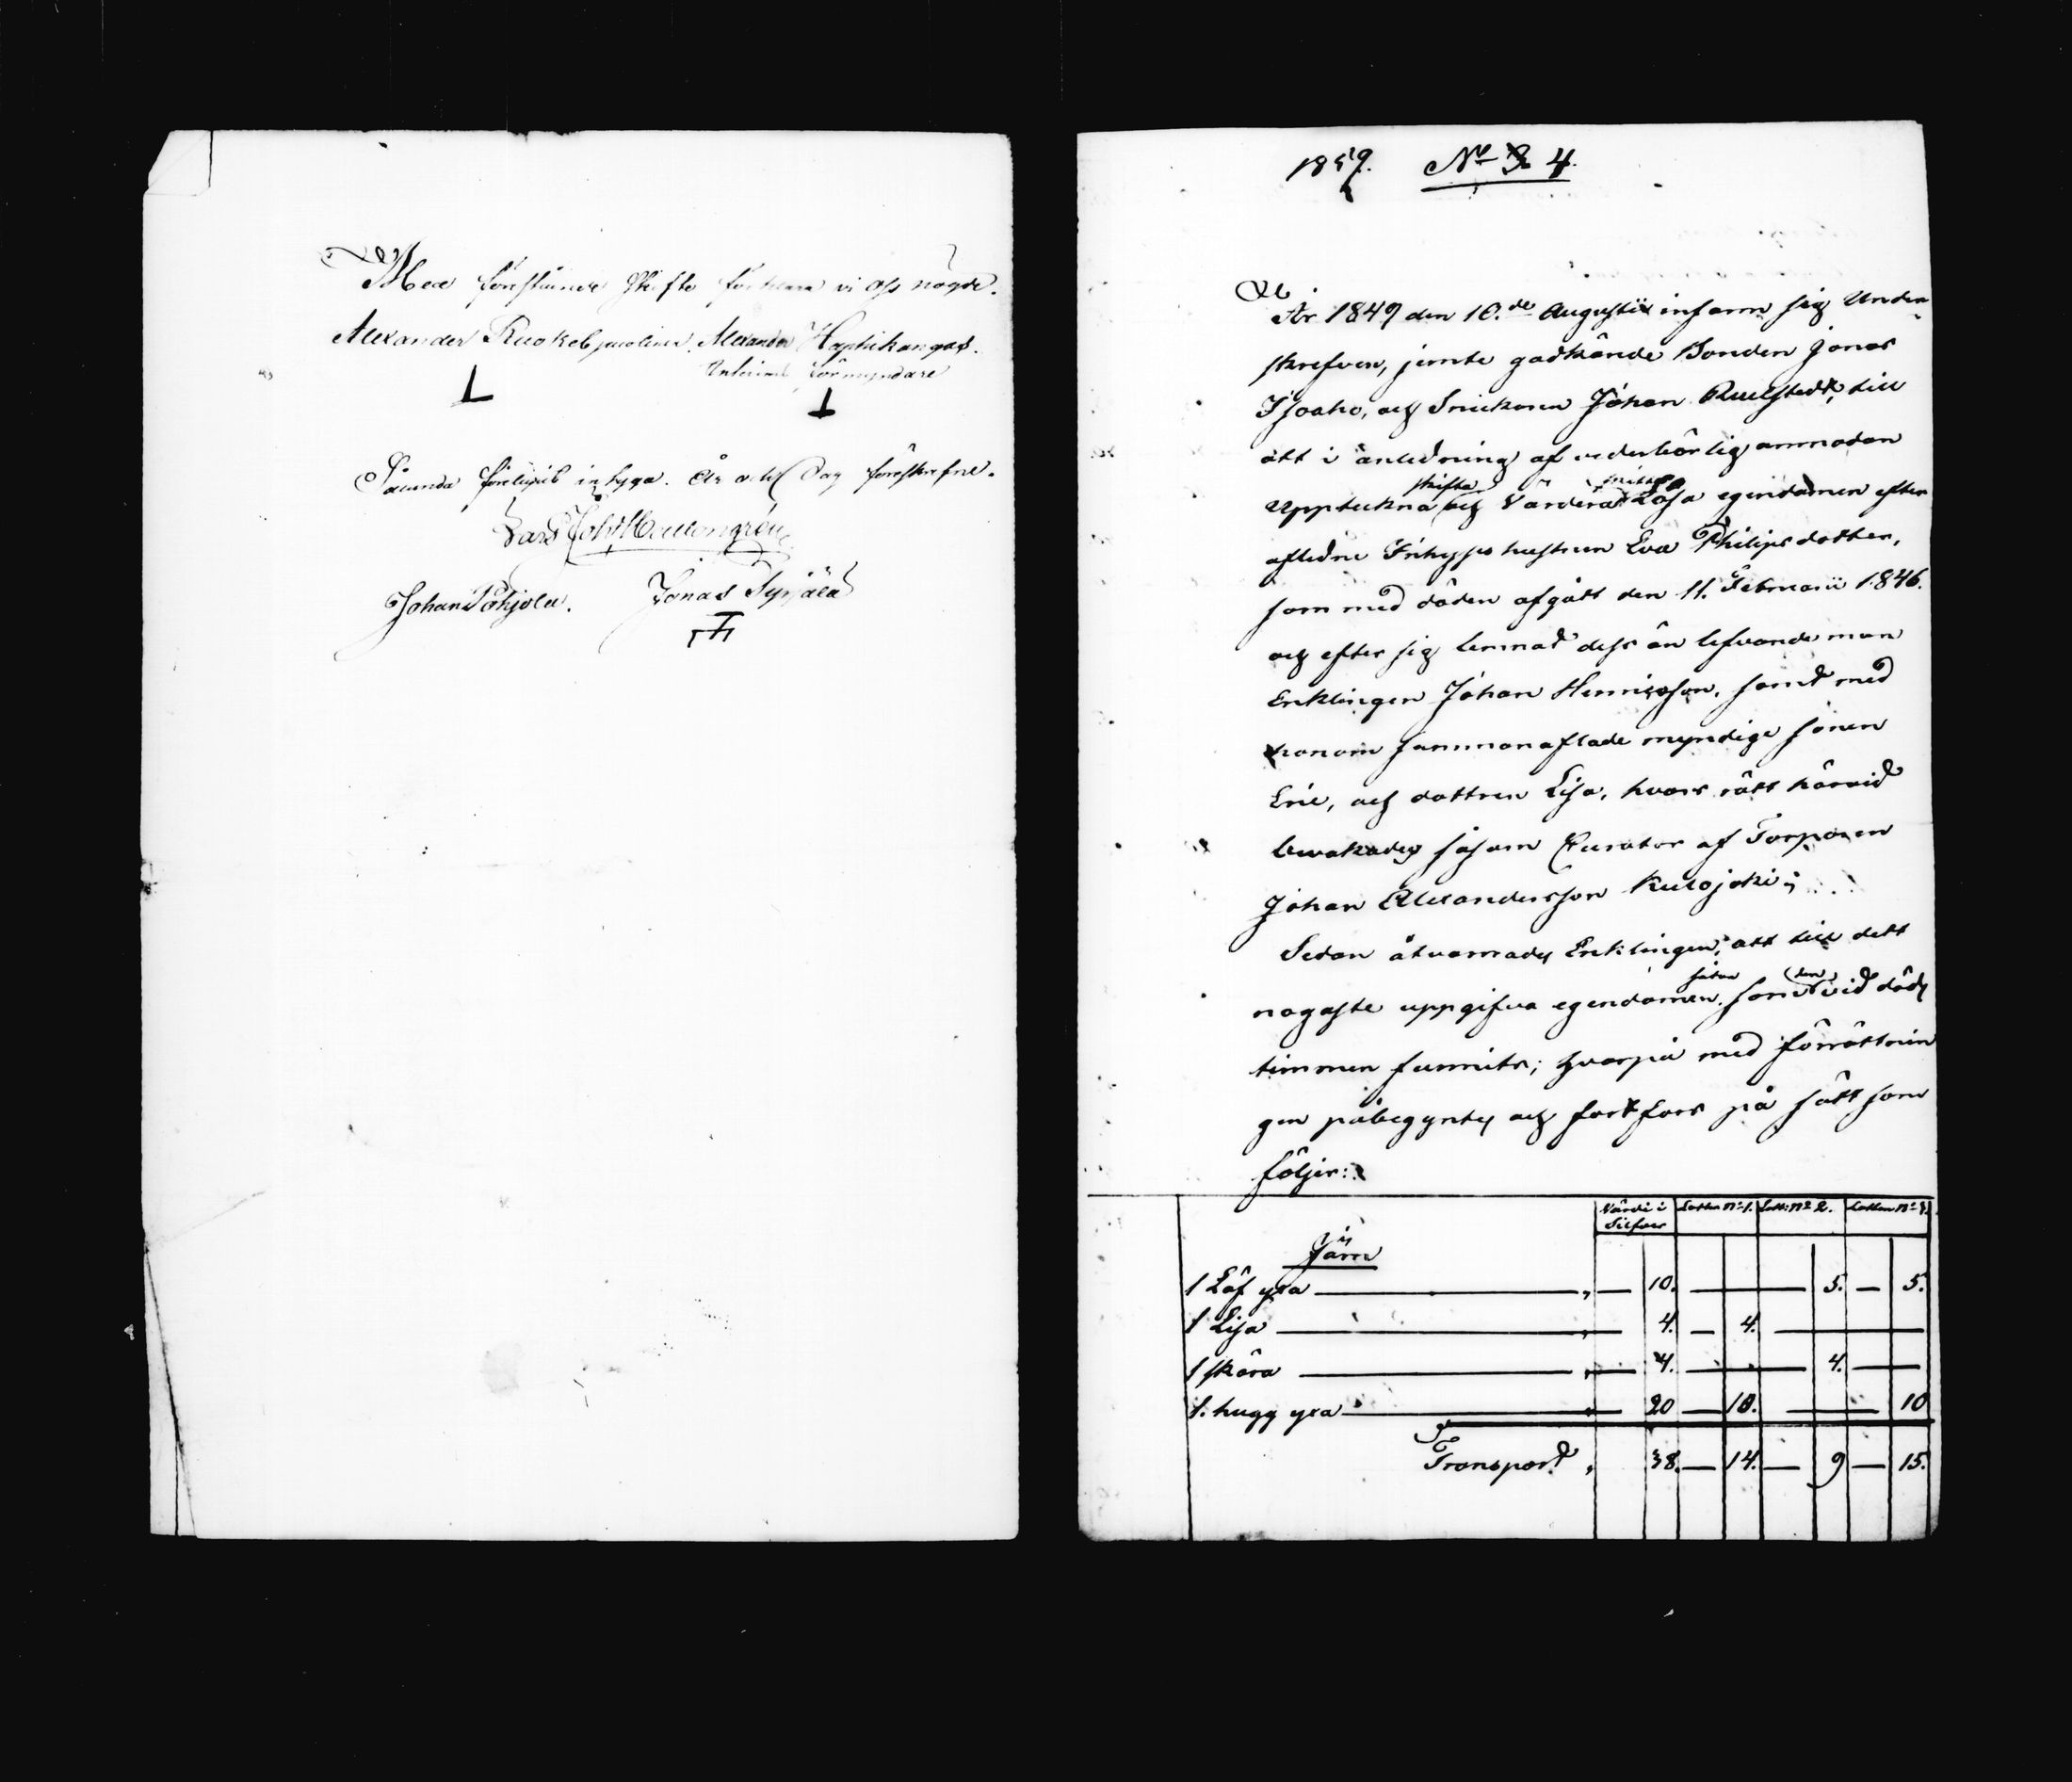 Med förestående Skifte förklara vi oss nögde.
Alexander Alexander Haapukangas.
Interims Förmyndare
Sålunda förelupit intyga. År och Dag föreskrefne.
Johan Pohjola. Jonas Typpälä
1849. No 3 4.
År 1849 den 10.de Augustii infann sig Under
skrefven, jemte godkände Bonden Jonas
Isoaho, och Snickaren Johan till
att i anledning af vederbörlig anmodan
skifta
uppteckna och Värdera Lösa egendomen efter
aflidne Inhyses hustrun Eva Philipsdotter,
som med döden afgått den 11. Februarii 1846.
och efter sig lemnad dess än lefvande man
Enklingen Johan Henricsson, samt med
honom sammanaflade myndige sonen
Eric, och dottren Lisa, hvars rätt härvid
bevakades såsom Curator af Torparen
Johan Alexandersson Kulojoki;
Sedan åtvarnades Enklingen, att till det
sådan den
nogaste uppgifva egendomen, som vid döds
timmen funnits; hvarpå med förrättnin
gen påbegyntes och fortfors på sätt som
följer:
Värde i Silfver Lotten No 1. Lott: No 2. Lotten No 3.
Järn
1 Löf yxa — 10. — 5. — 5.
1 Lija — 4. — 4. —
1 skära — 4. — 4. —
1. hugg yxa — 20 — 10. — 10
Transport, 38. — 14. — 9 — 15.